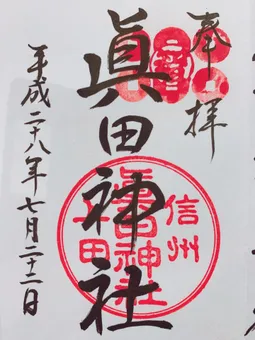 奉拝
眞田神社
信州
眞田神社
上田
平成二十八年七月二十二日